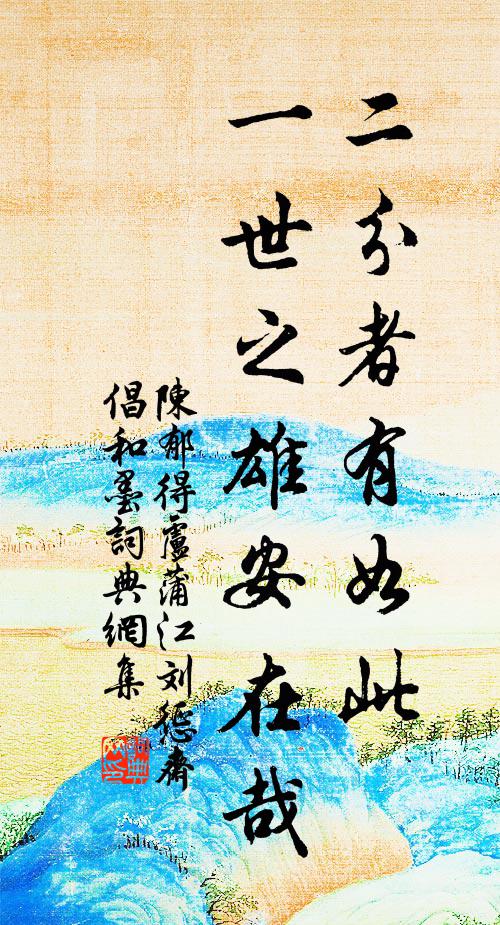 二分者有如此
一世之雄安在哉
陳郁得盧蒲江刘惩齋
倡和墨詞典網集